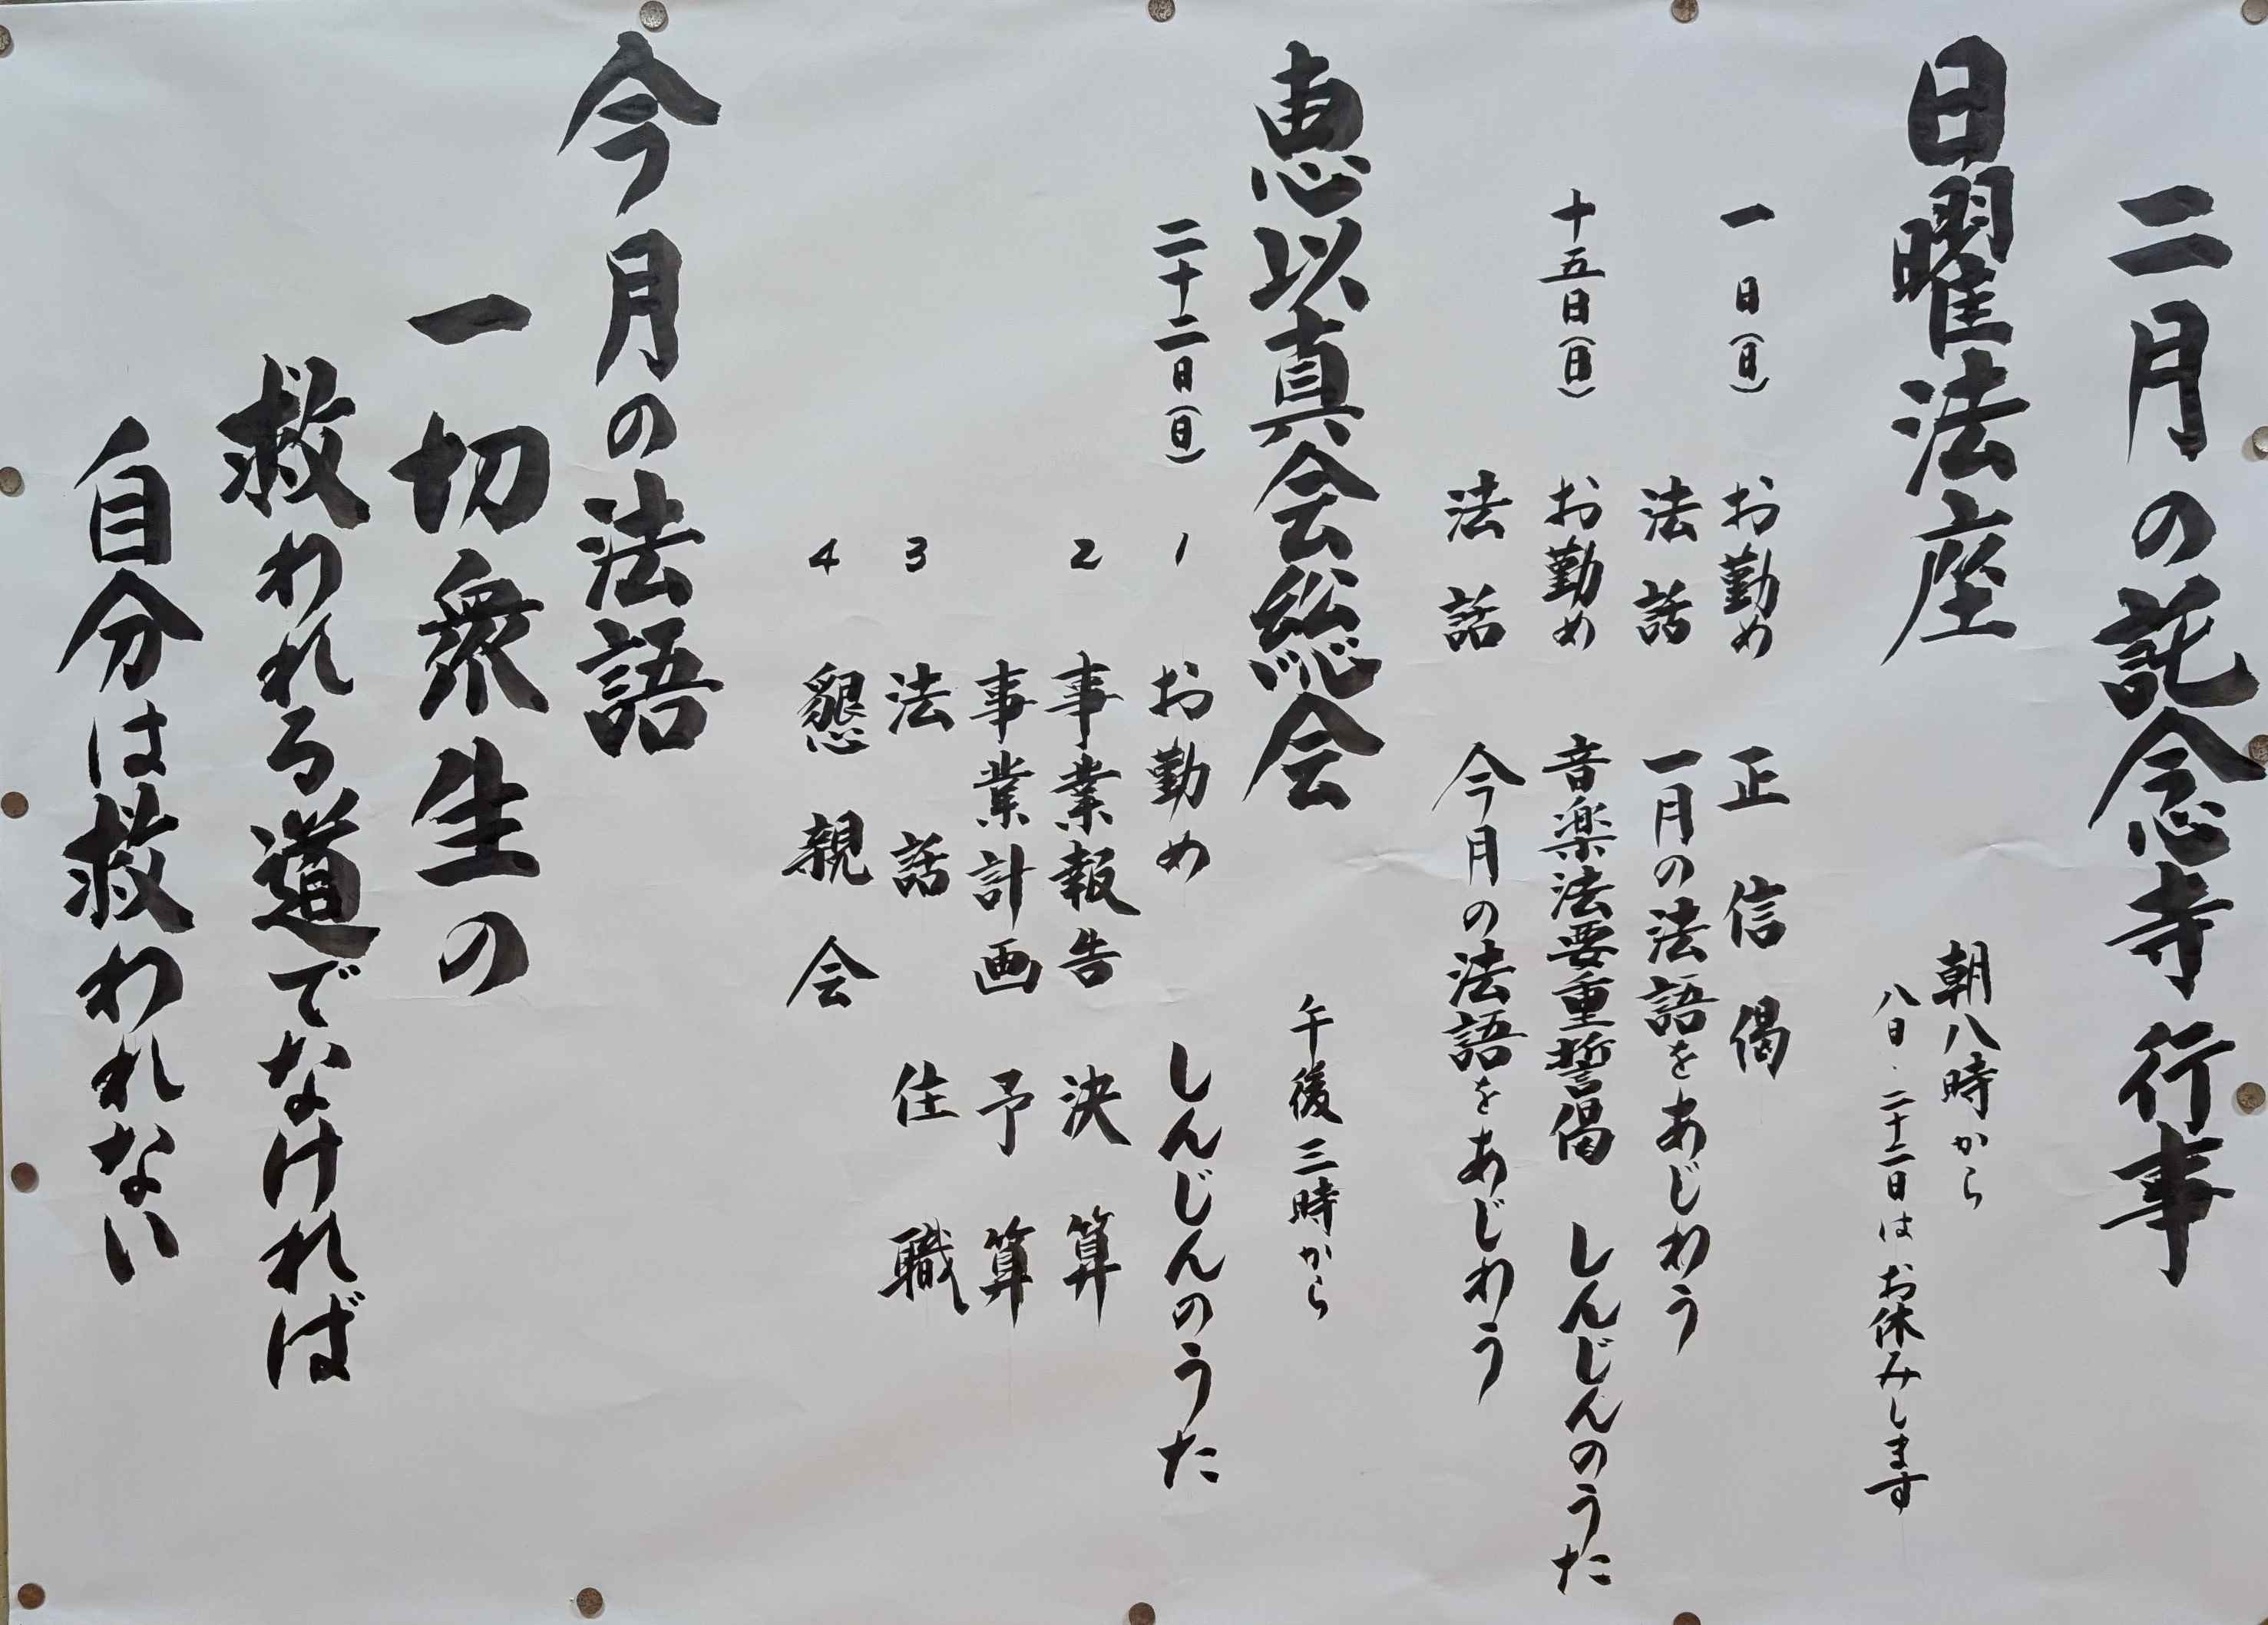 二月の託念寺行事
日曜法座
朝八時から
八日・二十二日はお休みします
一日(日) お勤め 正信偈
法話 一月の法語をあじわう
十五日(日) お勤め 音楽法要重誓偈 しんじんのうた
法話 今月の法語をあじわう
恵以真会総会 午後三時から
二十二日(日) 1 お勤め しんじんのうた
2 事業報告 決算
事業計画 予算
3 法話 住職
4 懇親会
今月の法語
一切衆生の
救われる道でなければ
自分は救われない